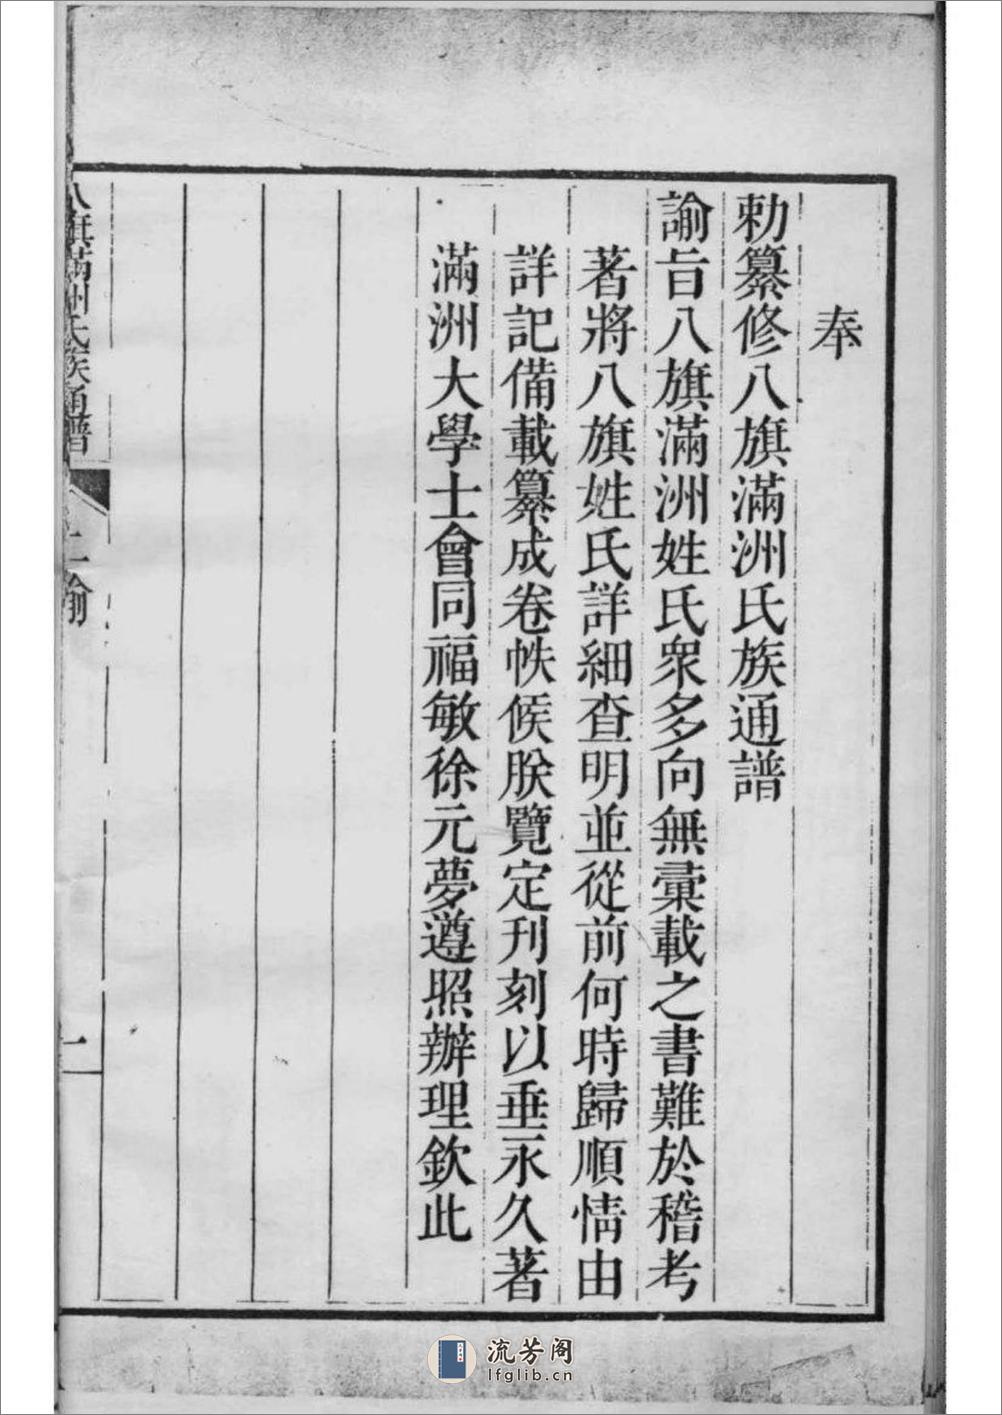 奉
勅纂修八旗滿洲氏族通譜
諭旨八旗滿洲姓氏衆多向無彙載之書難於稽考
著將八旗姓氏詳細查明並從前何時歸順情由
詳記備載纂成卷帙候朕覽定刊刻以垂永久著
滿洲大學士會同福敏徐元夢遵照辦理欽此
八旗滿洲氏族通譜
上諭
一
流芳阁
lfglib.cn